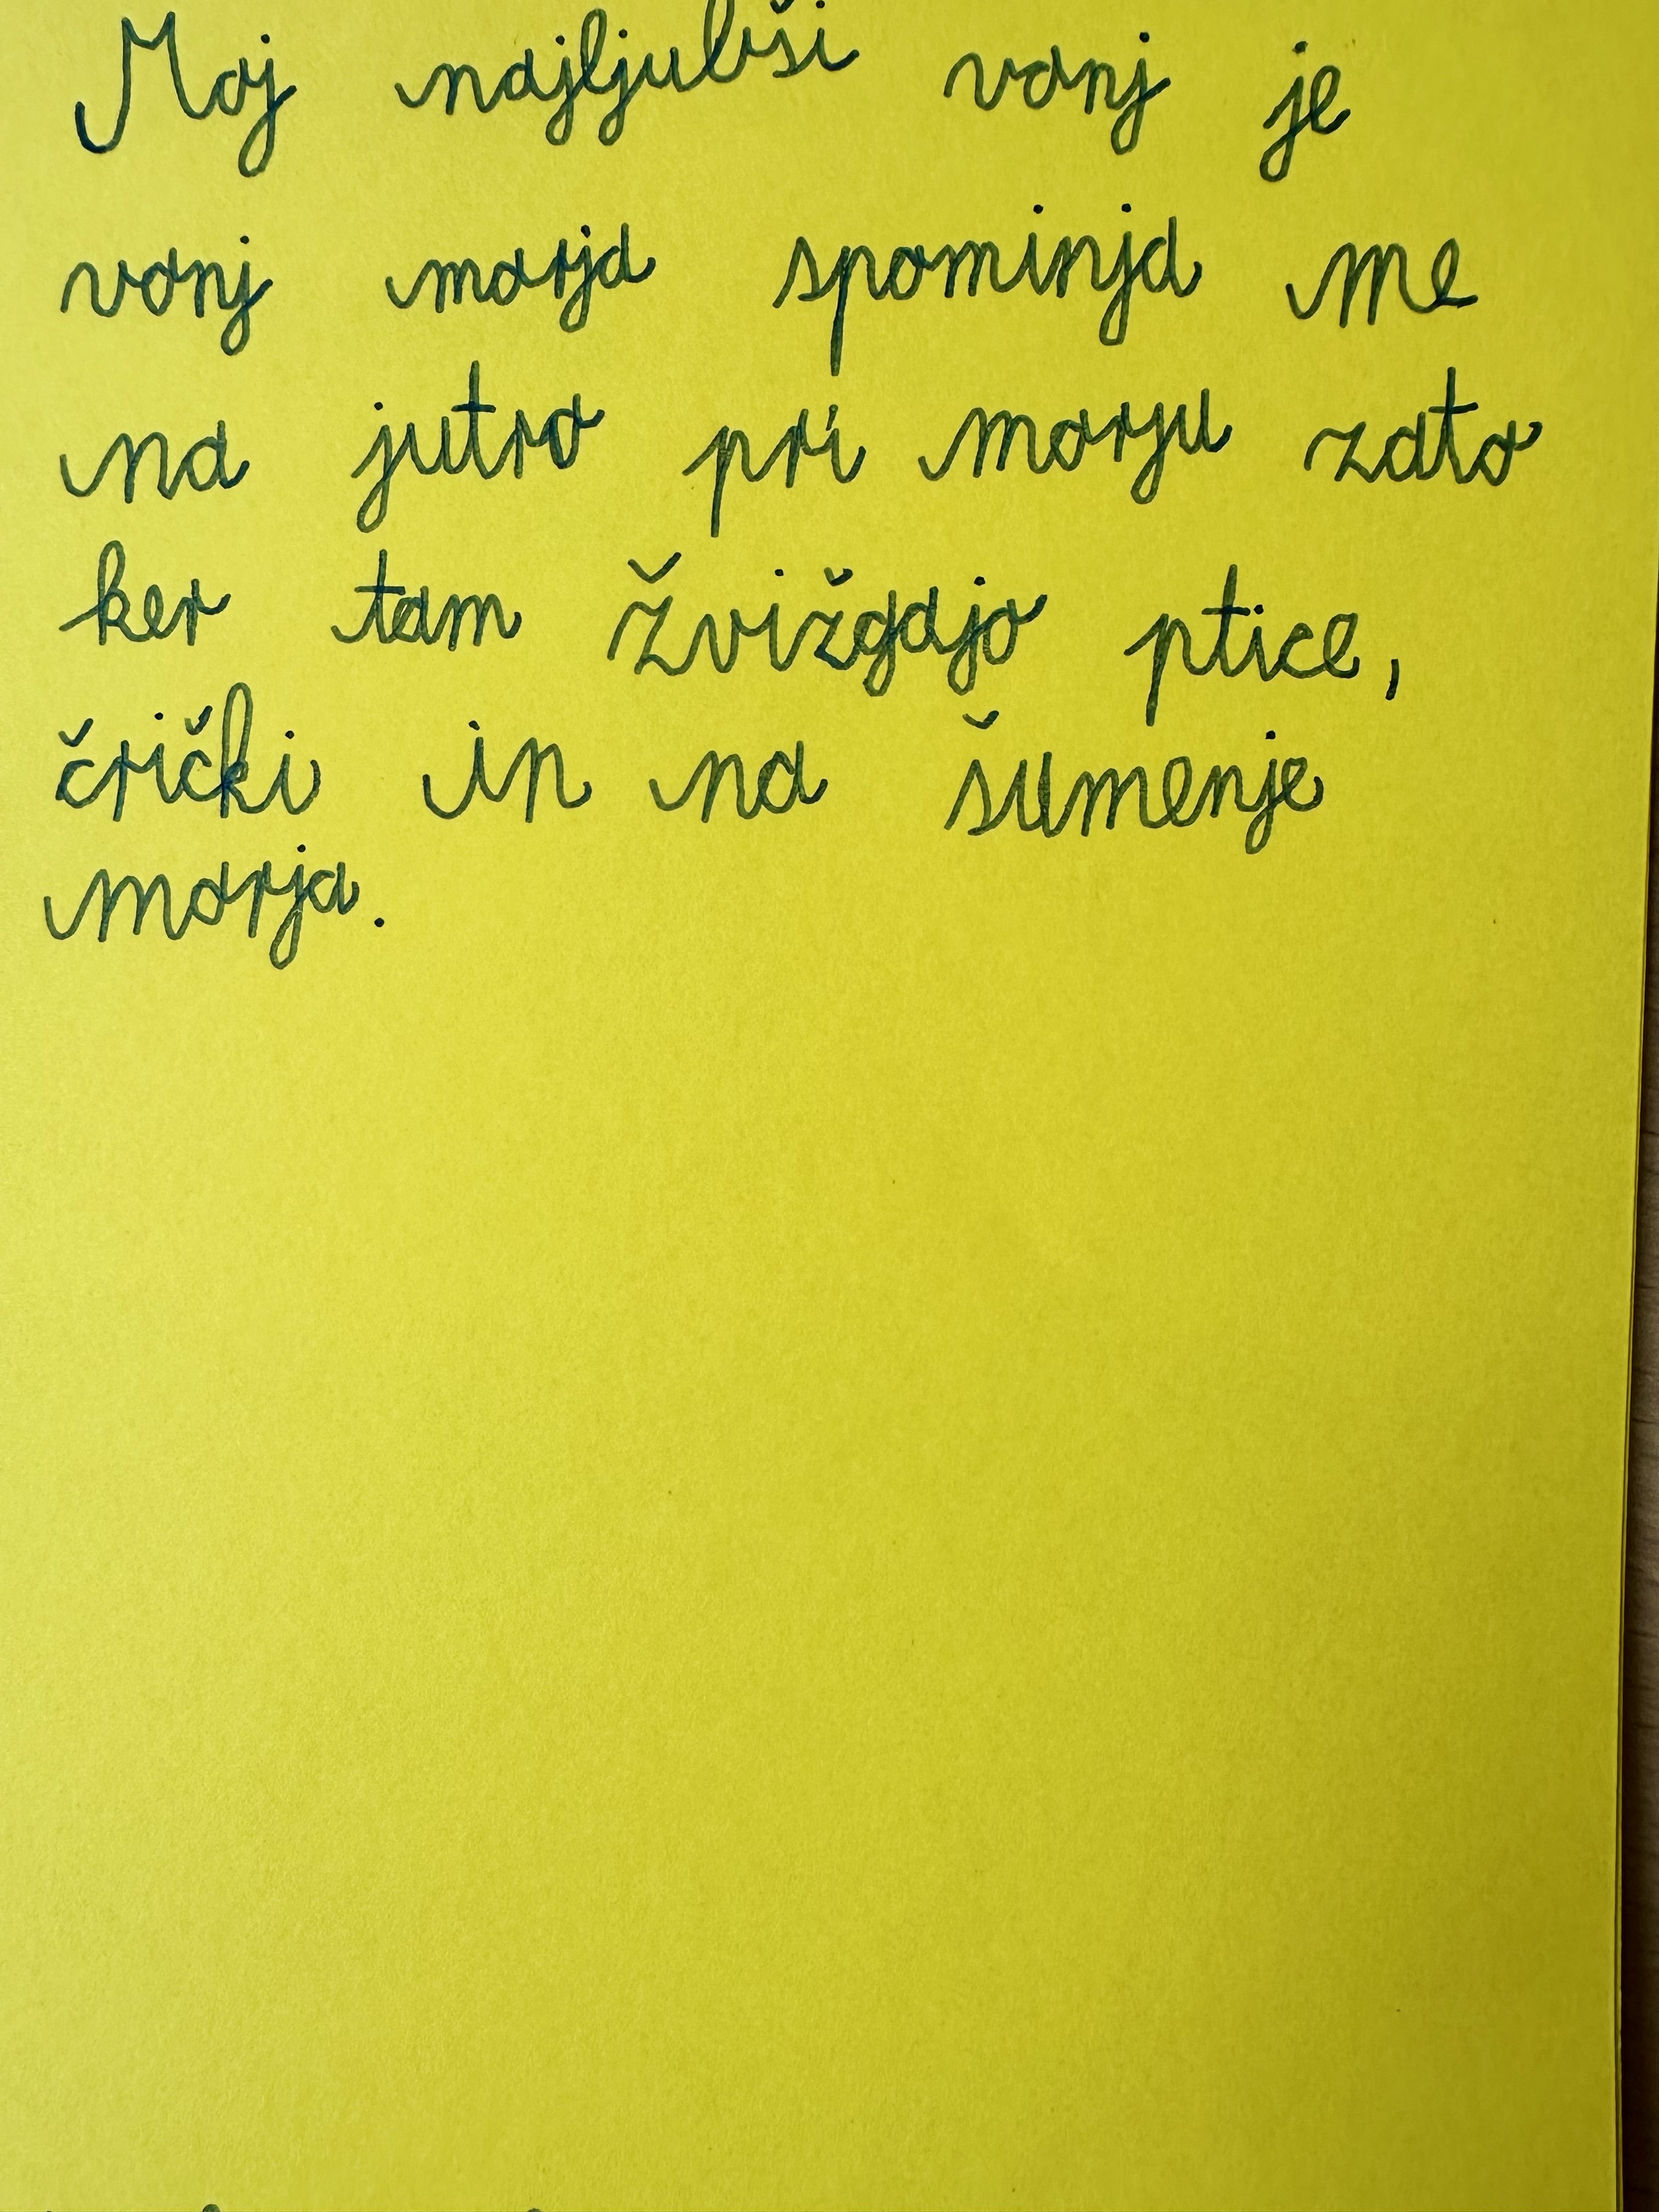 Moj najljubši vonj je
vonj morja spominja me
na jutro pri morju zato
ker tam žvižgajo ptice,
črički in na šumenje
morja.